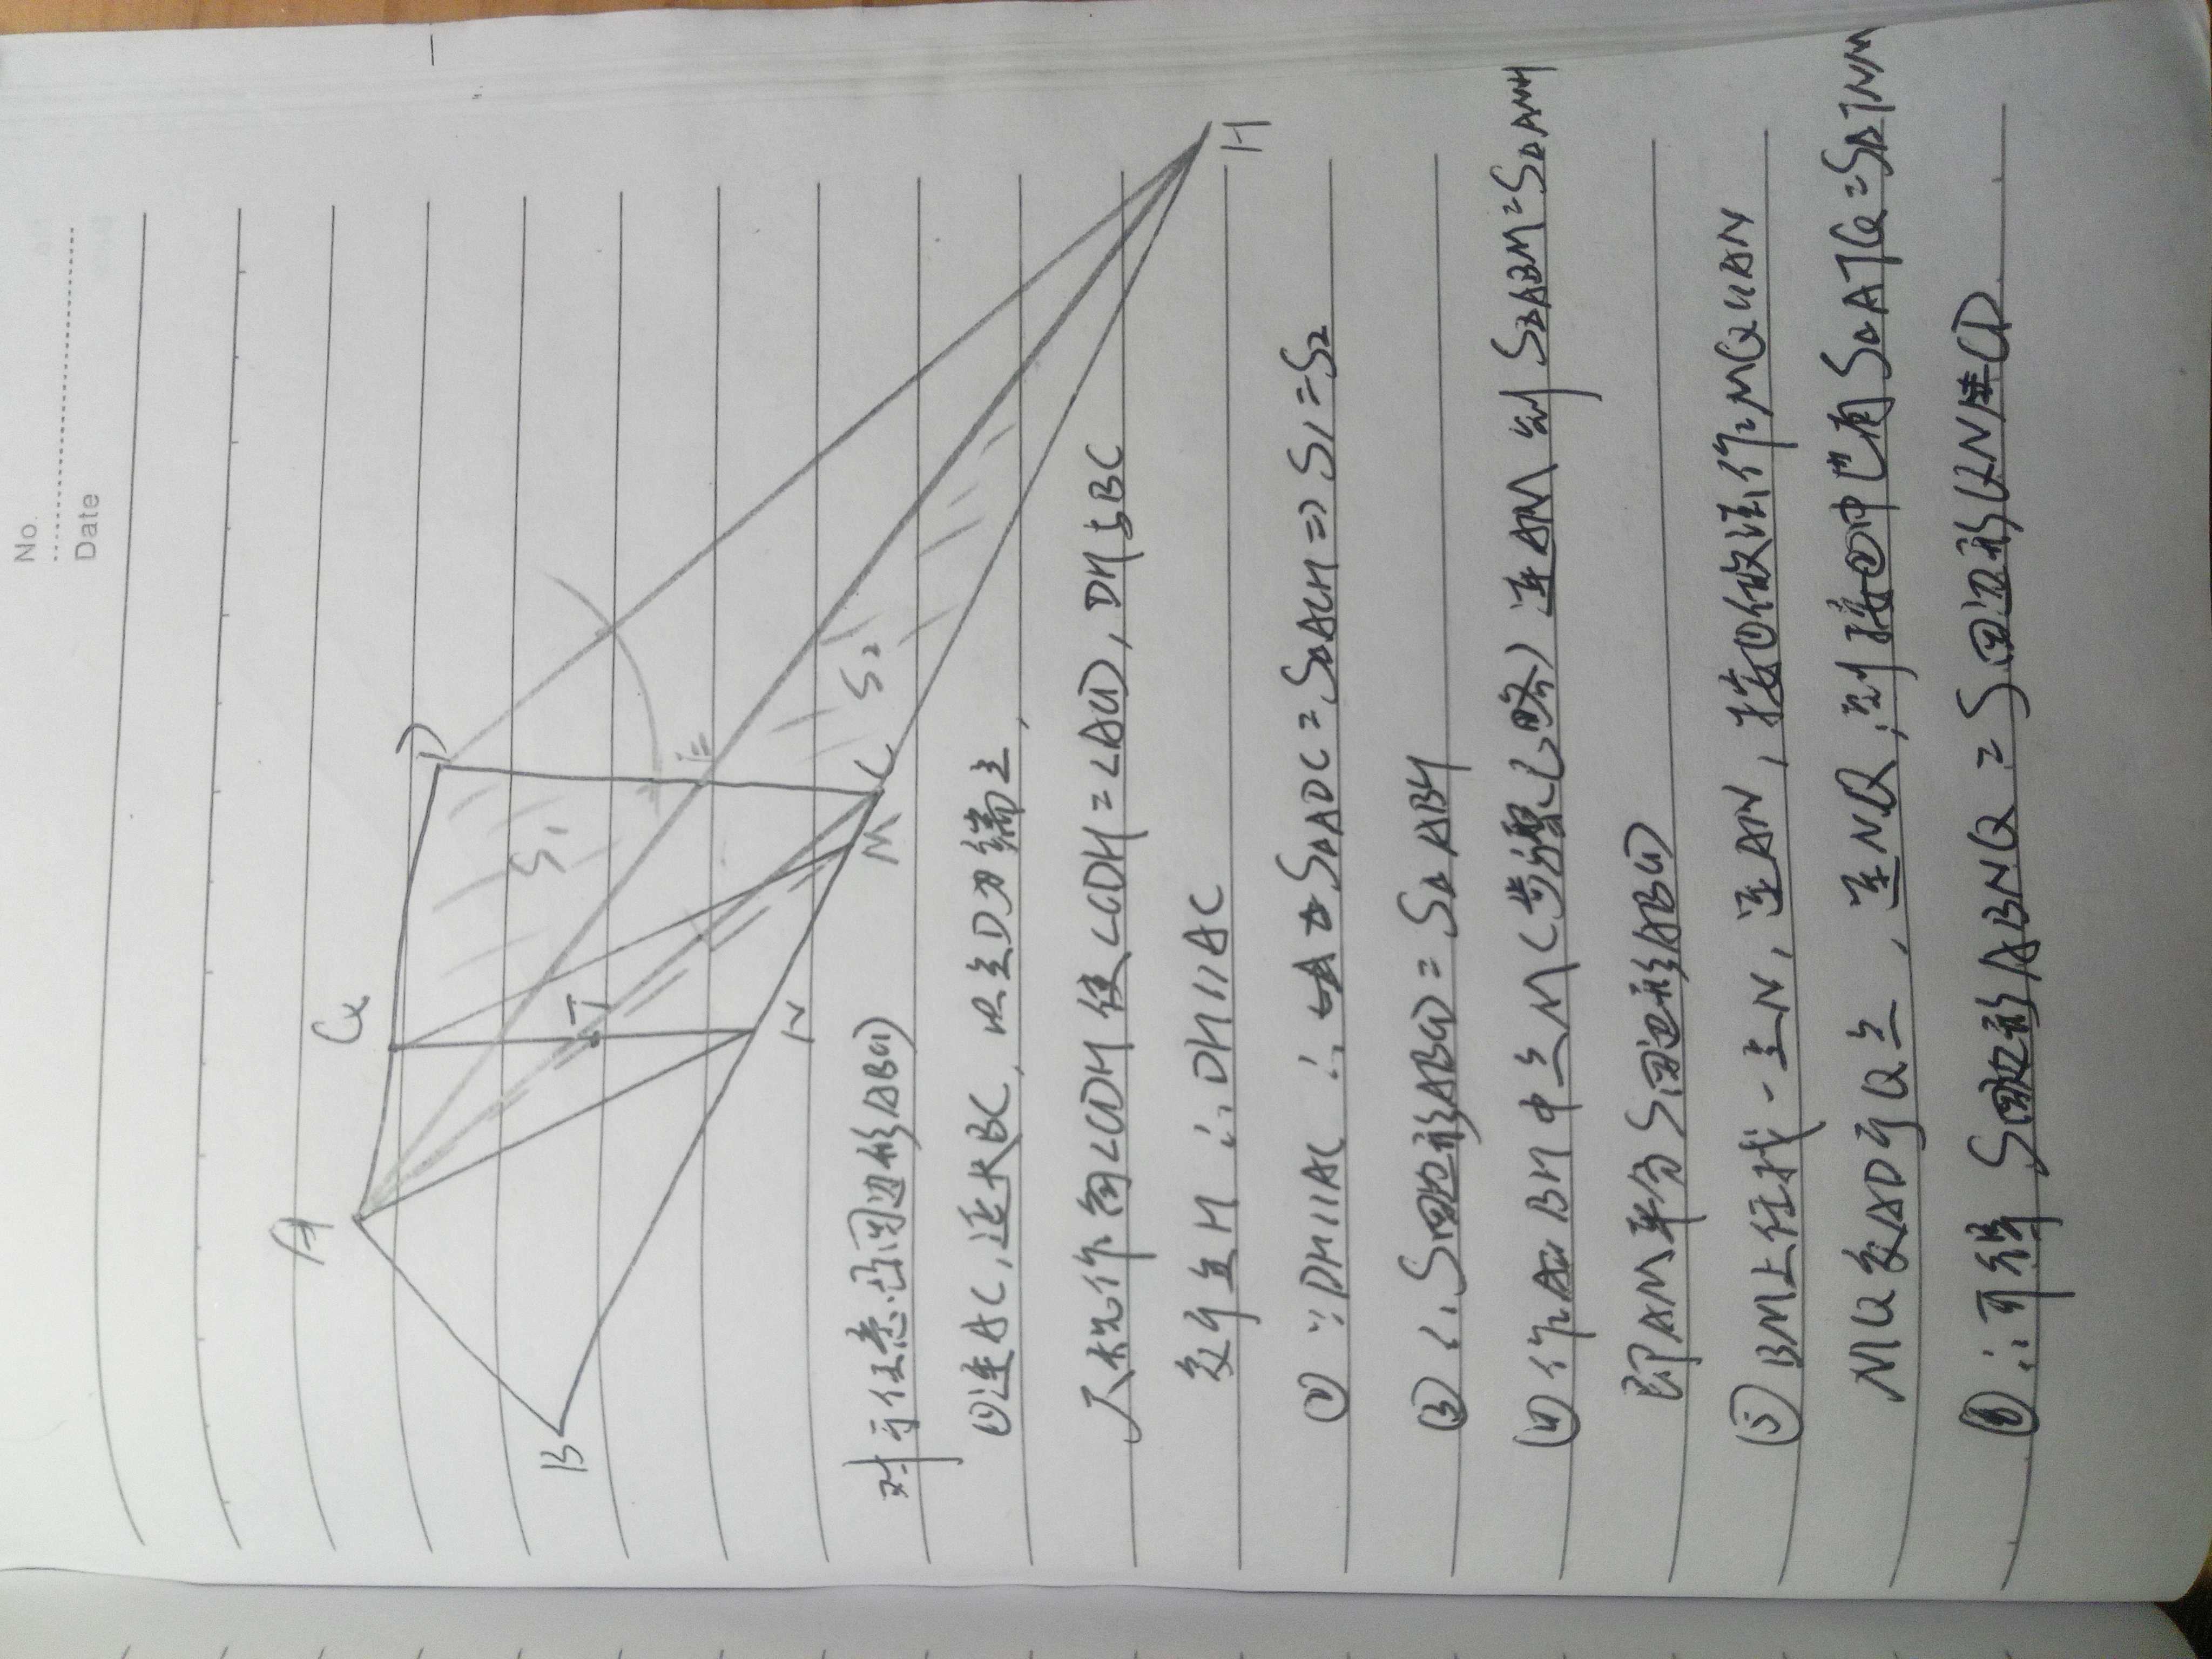 No.
Date
A
Q
D
B
T
E
S₁
N
M
C
S₂
H
对于任意凸四边形ABCD
①连AC,延长BC,以点D为端点,
尺规作角∠CDH使∠CDH=∠ACD,DH与BC
交于点H ∴DH∥AC
②∵DH∥AC ∴S△ADC=S△ACH⇒S₁=S₂
③∴S四边形ABCD=S△ABH
④作BH中点M(步骤已略)连AM 则S△ABM=S△AMH
即AM平分S四边形ABCD
⑤BM上任找一点N,连AN,按①做法作MQ∥AN
MQ交AD于Q点,连NQ,则按②中也有S△ATQ=S△TNM
⑥∴可得S四边形ABNQ=S四边形QNCD